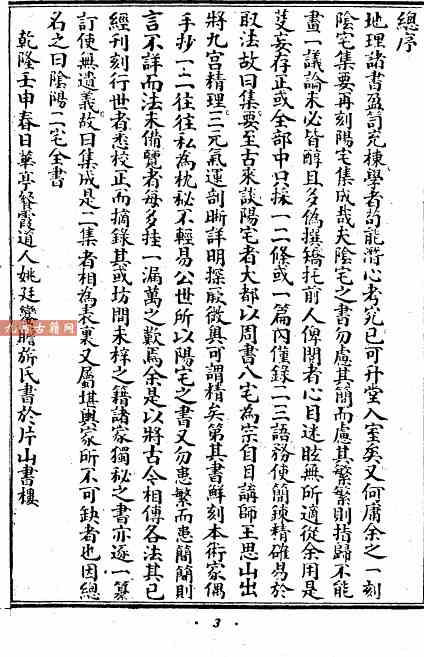 總序
地理諸書盈笥充棟學者苟能潛心考究已可升堂入室矣又何庸余之一刻
陰宅集要再刻陽宅集成哉夫陰宅之書勿慮其簡而慮其繁繁則指歸不能
畫一議論未必皆醇且多偽撰矯托前人俾閱者心目迷眩無所適從余用是
芟妄存正或全部中只採一二條或一篇內僅錄一二語務使簡鍊精確易於
取法故曰集要至古來談陽宅者大都以周書八宅為宗自目講師王思山出
將九宮精理三元氣運剖晣詳明探厥微奧可謂精矣第其書鮮刻本術家偶
手抄一二往往私為枕秘不輕易公世所以陽宅之書又勿患繁而患簡簡則
言不詳而法未備覽者每多挂一漏萬之歎焉余是以將古今相傳各法其已
經刊刻行世者悉校正而摘錄其或坊間未梓之籍諸家獨秘之書亦逐一纂
訂使無遺義故曰集成是二集者相為表裏又屬堪輿家所不可缺者也因總
名之曰陰陽二宅全書
乾隆壬申春日華亭餐霞道人姚廷鑾瞻旂氏書於片山書樓
九洲古籍网
·3·